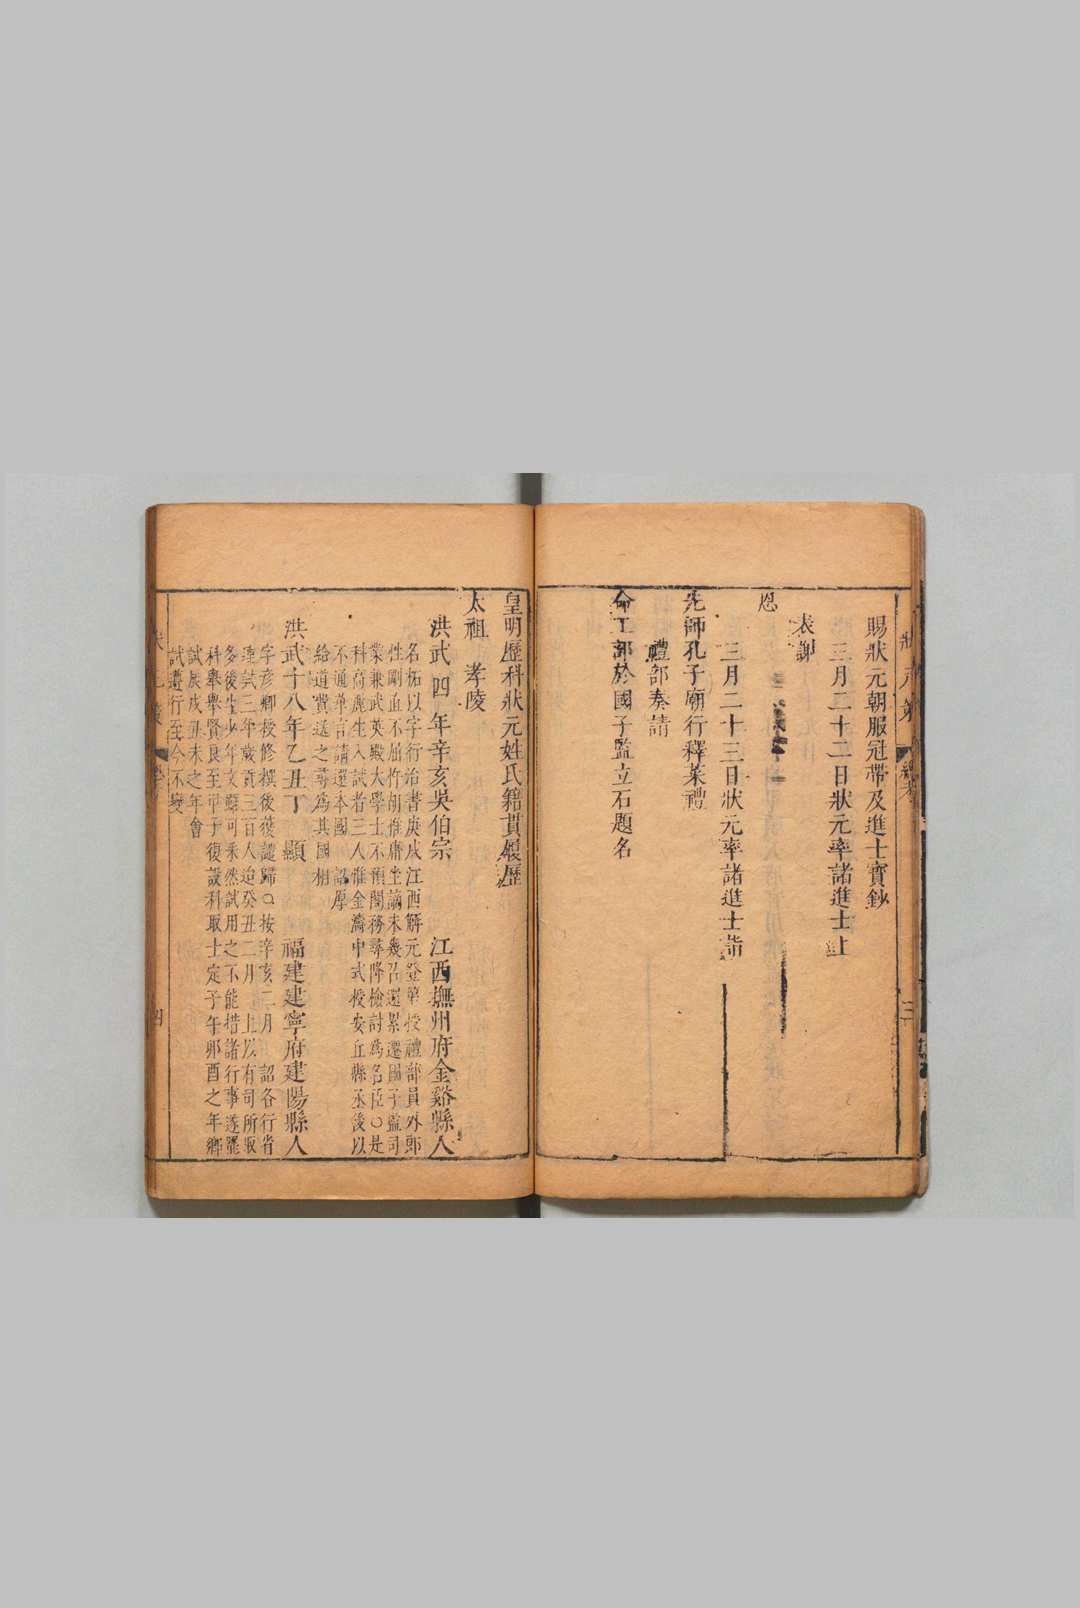 賜狀元朝服冠帶及進士寶鈔
三月二十二日狀元率諸進士上
表謝
恩
三月二十三日狀元率諸進士詣
先師孔子廟行釋菜禮
禮部奏請
命工部於國子監立石題名
皇明歷科狀元姓氏籍貫履歷
太祖 孝陵
洪武四年辛亥吳伯宗 江西撫州府金谿縣人
名祏以字行治書庚戌江西解元登第授禮部員外郎
性剛直不屈忤胡惟庸坐謫未幾召還累遷國子監司
業兼武英殿大學士不預閣務尋降檢討為名臣○是
科高麗生入試者三人惟金濤中式授安丘縣丞後以
不通華言請還本國 詔厚
給道費送之尋為其國相
洪武十八年乙丑丁顯 福建建寧府建陽縣人
字彥卿授修撰後獲譴歸○按辛亥二月 詔各行省
連試三年歲貢三百人迨癸丑二月 上以有司所取
多後生少年文辭可采然試用之不能措諸行事遂罷
科舉舉賢良至甲子復設科取士定子午卯酉之年鄉
試辰戌丑未之年會
試遵行至今不變
狀元策
四